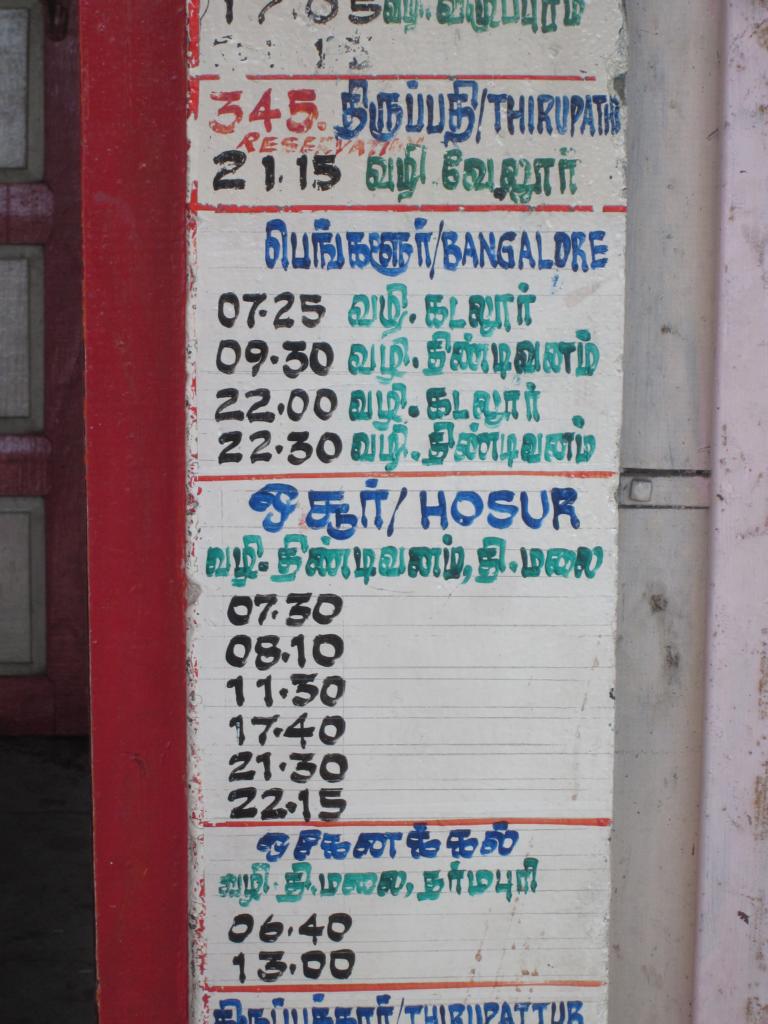 17.05 வழி. விழுப்புரம்
345. திருப்பதி/THIRUPATHI
RESERVATION
21.15 வழி வேலூர்
பெங்களூர்/BANGALORE
07.25 வழி. கடலூர்
09.30 வழி. திண்டிவனம்
22.00 வழி. கடலூர்
22.30 வழி. திண்டிவனம்
ஒசூர்/HOSUR
வழி. திண்டிவனம், தி.மலை
07.30
08.10
11.30
17.40
21.30
22.15
ஒகேனக்கல்
வழி. தி.மலை, தர்மபுரி
06.40
13.00
திருப்பத்தூர்/THIRUPATTUR